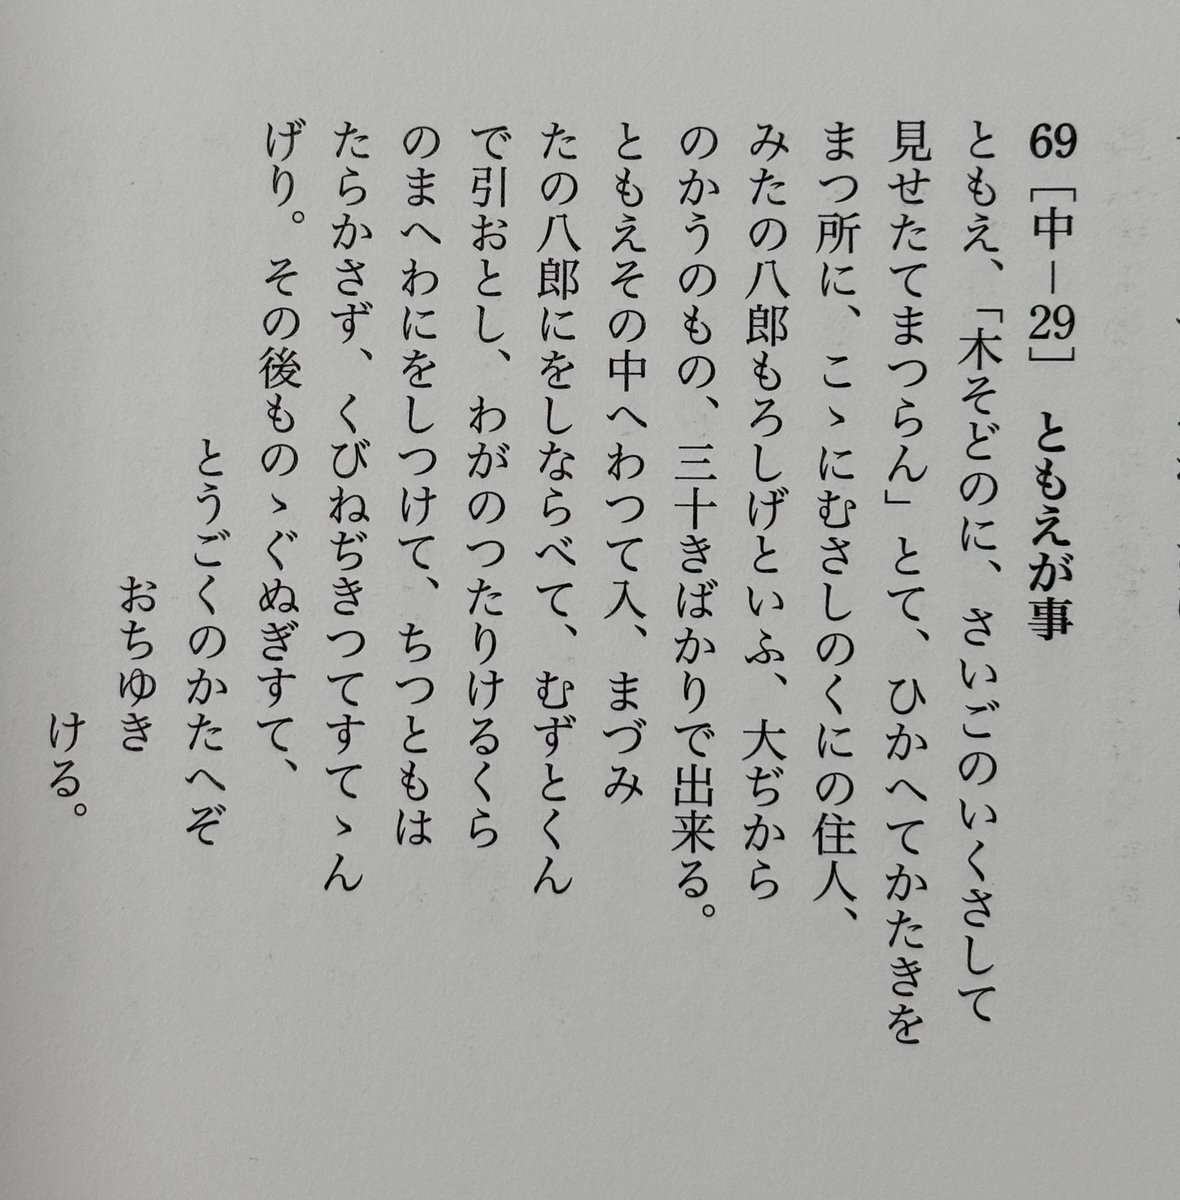 69［中－29］　ともえが事
ともえ、「木そどのに、さいごのいくさして
見せたてまつらん」とて、ひかへてかたきを
まつ所に、こゝにむさしのくにの住人、
みたの八郎もろしげといふ、大ぢから
のかうのもの、三十きばかりで出来る。
ともえその中へわつて入、まづみ
たの八郎にをしならべて、むずとくん
で引おとし、わがのつたりけるくら
のまへわにをしつけて、ちつともは
たらかさず、くびねぢきつてすてゝん
げり。その後ものゝぐぬぎすて、
とうごくのかたへぞ
おちゆき
ける。